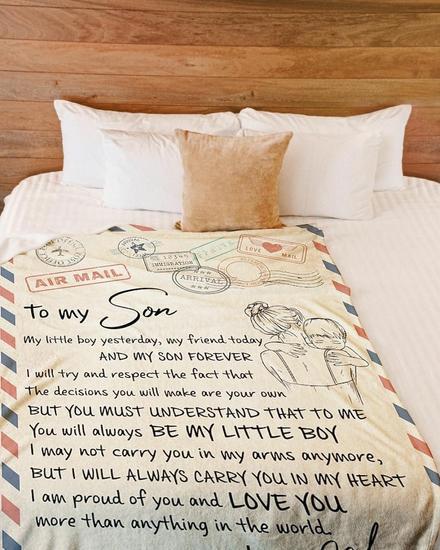 12345
IMMIGRATION
LOVE MAIL
ARRIVAL
AIR MAIL
to my Son
My little boy yesterday, my friend today
AND MY SON FOREVER
I will try and respect the fact that
The decisions you will make are your own
BUT YOU MUST UNDERSTAND THAT TO ME
You will always BE MY LITTLE BOY
I may not carry you in my arms anymore,
BUT I WILL ALWAYS CARRY YOU IN MY HEART
I am proud of you and LOVE YOU
more than anything in the world.